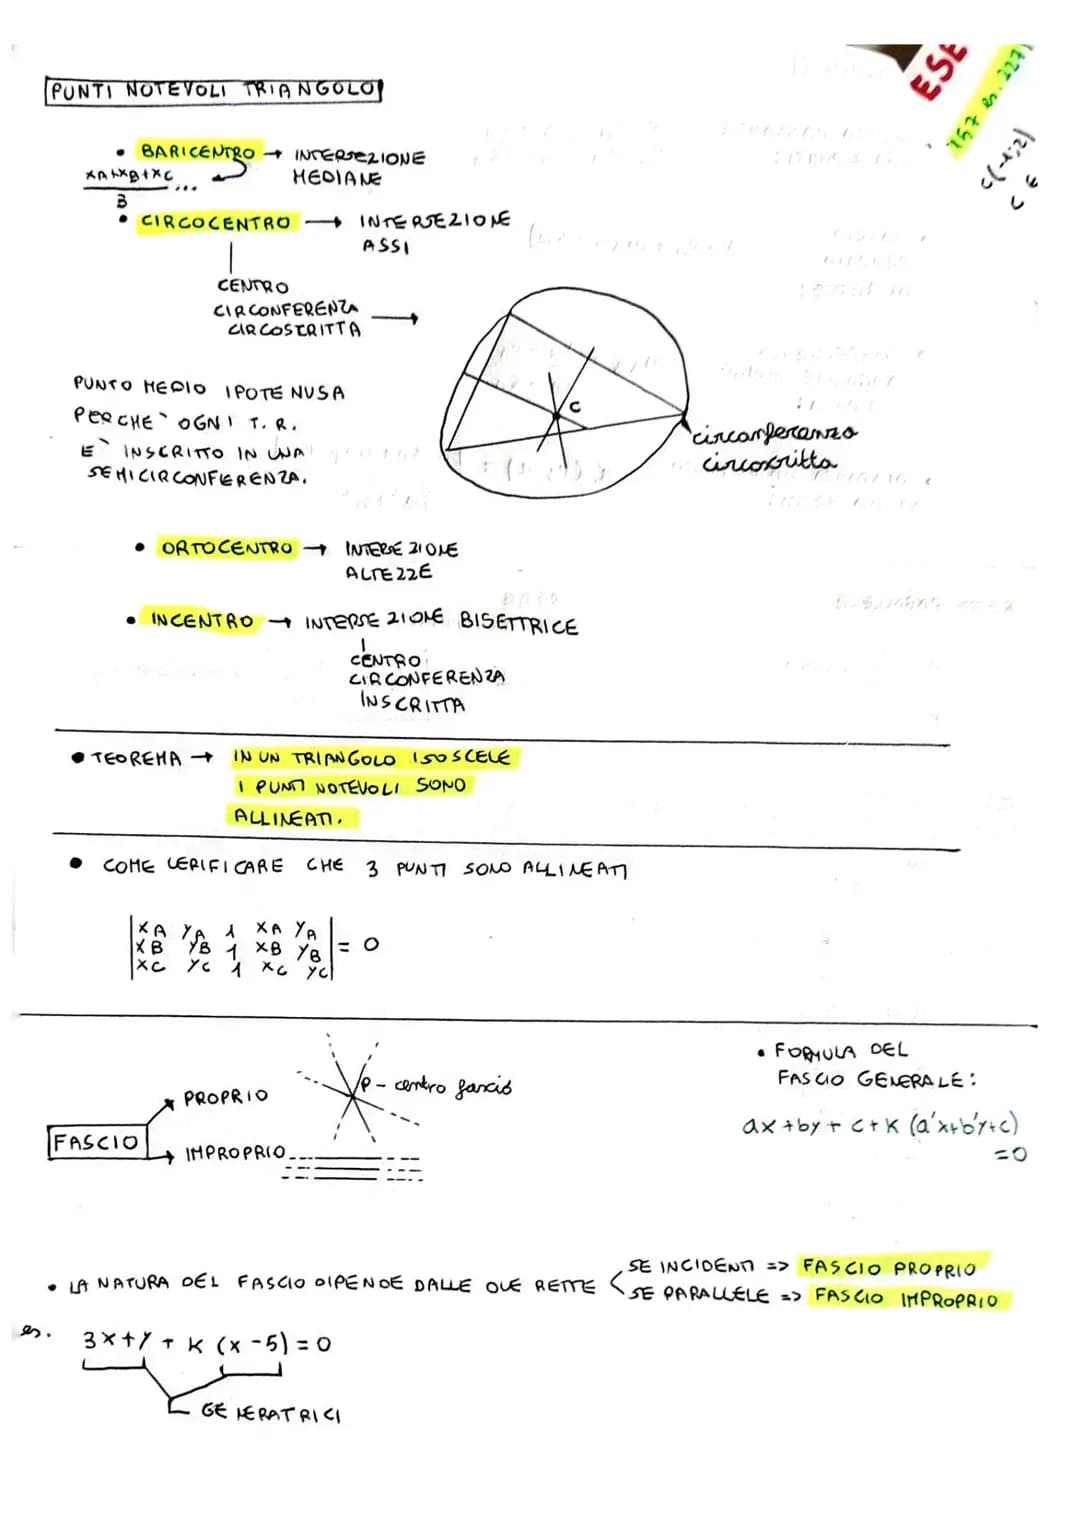 PUNTI NOTEVOLI TRIANGOLO
• BARICENTRO → INTERSEZIONE
MEDIANE
xA+xB+xC ...
3
• CIRCOCENTRO → INTERSEZIONE
ASSI
CENTRO
CIRCONFERENZA →
CIRCOSCRITTA
PUNTO MEDIO IPOTENUSA
PERCHE` OGNI T. R.
E` INSCRITTO IN UNA
SEMICIRCONFERENZA.
C
circonferenza
circoscritta
• ORTOCENTRO → INTERSEZIONE
ALTEZZE
• INCENTRO → INTERSEZIONE BISETTRICE
CENTRO
CIRCONFERENZA
INSCRITTA
• TEOREMA → IN UN TRIANGOLO ISOSCELE
I PUNTI NOTEVOLI SONO
ALLINEATI.
• COME VERIFICARE CHE 3 PUNTI SONO ALLINEATI
|xA yA 1 xA yA|
|xB yB 1 xB yB| = 0
|xC yC 1 xC yC|
FASCIO
PROPRIO
IMPROPRIO
P - centro fascio
• FORMULA DEL
FASCIO GENERALE:
ax+by+c+K (a'x+b'y+c)
=0
• LA NATURA DEL FASCIO DIPENDE DALLE DUE RETTE
SE INCIDENTI => FASCIO PROPRIO
SE PARALLELE => FASCIO IMPROPRIO
es. 3x+y + K (x-5) = 0
GENERATRICI
ESE
157 es. 227